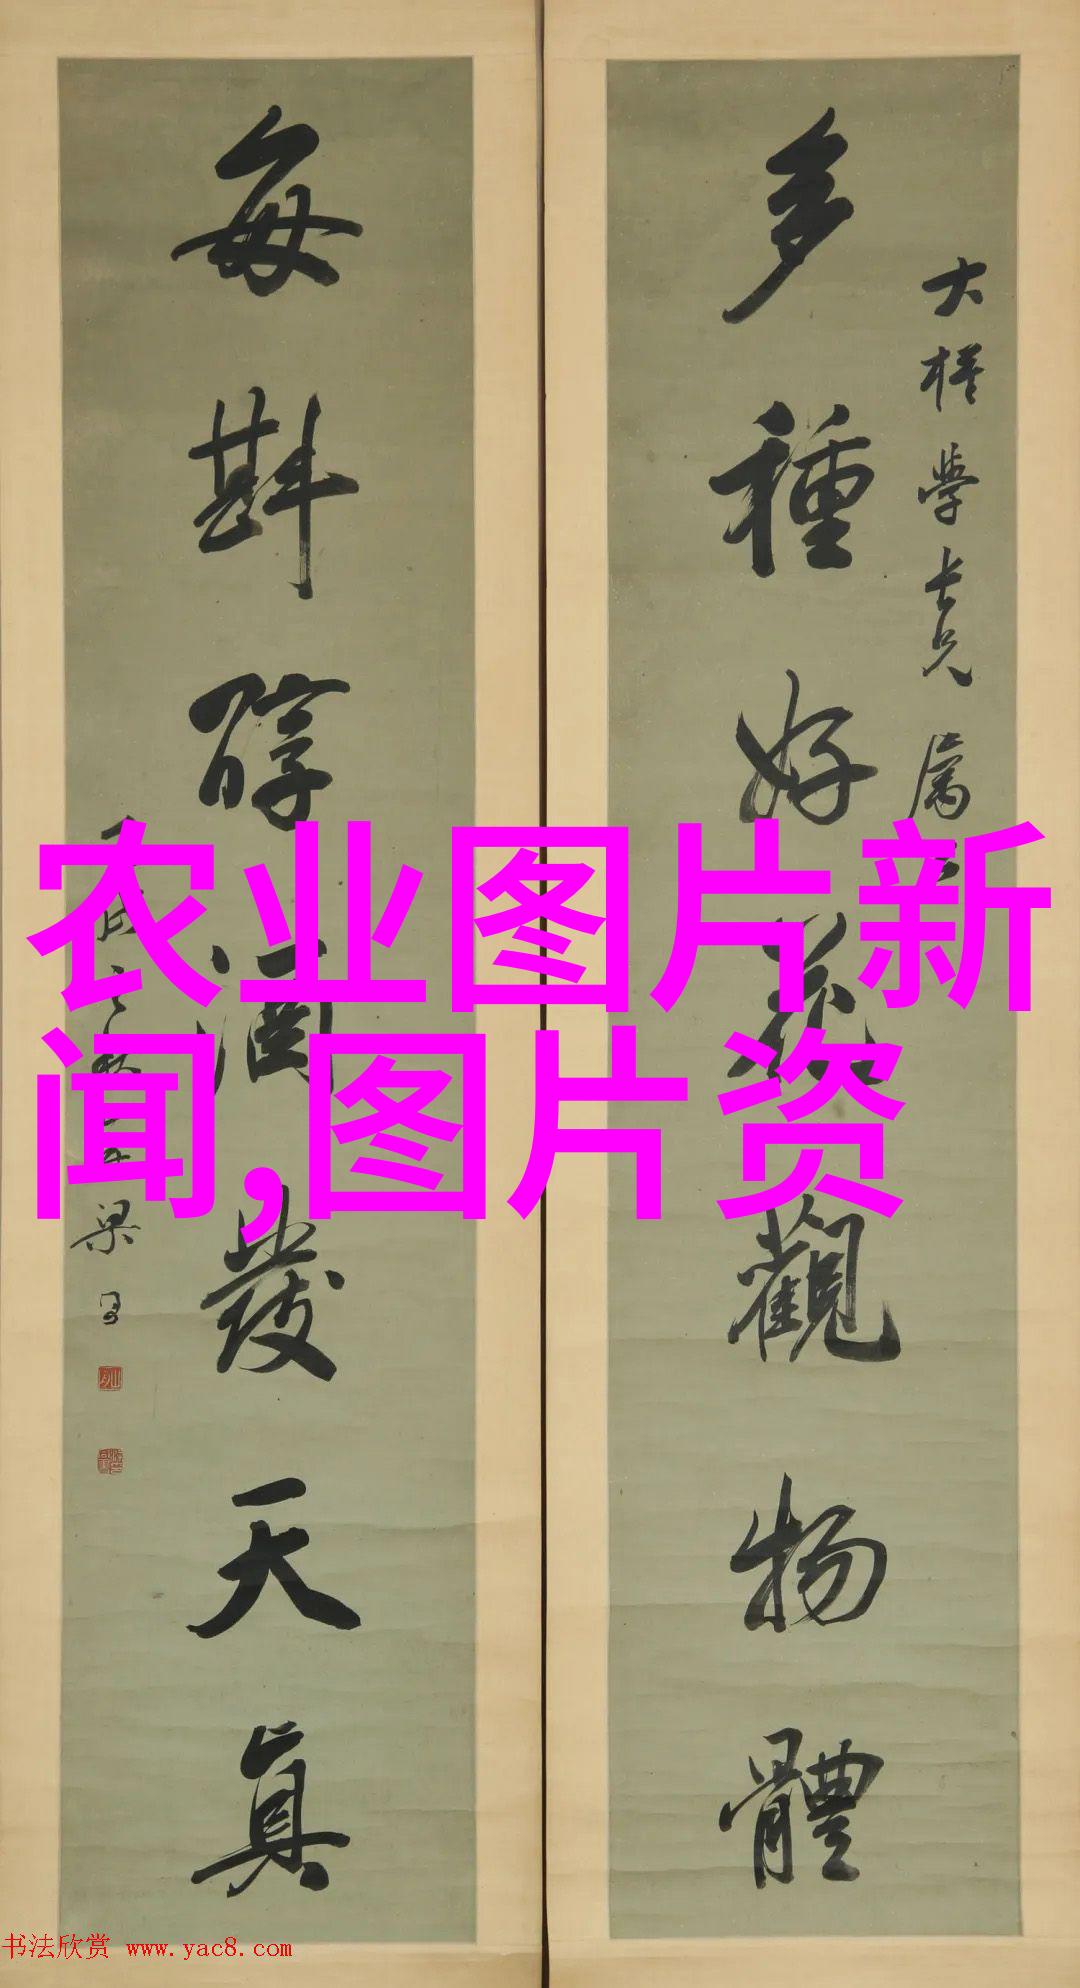 多種好花觀物體
大楳學長兄屬
每斟醇酒發天真
梁
农业图片新
闻,图片资
书法欣赏 www.yac8.com